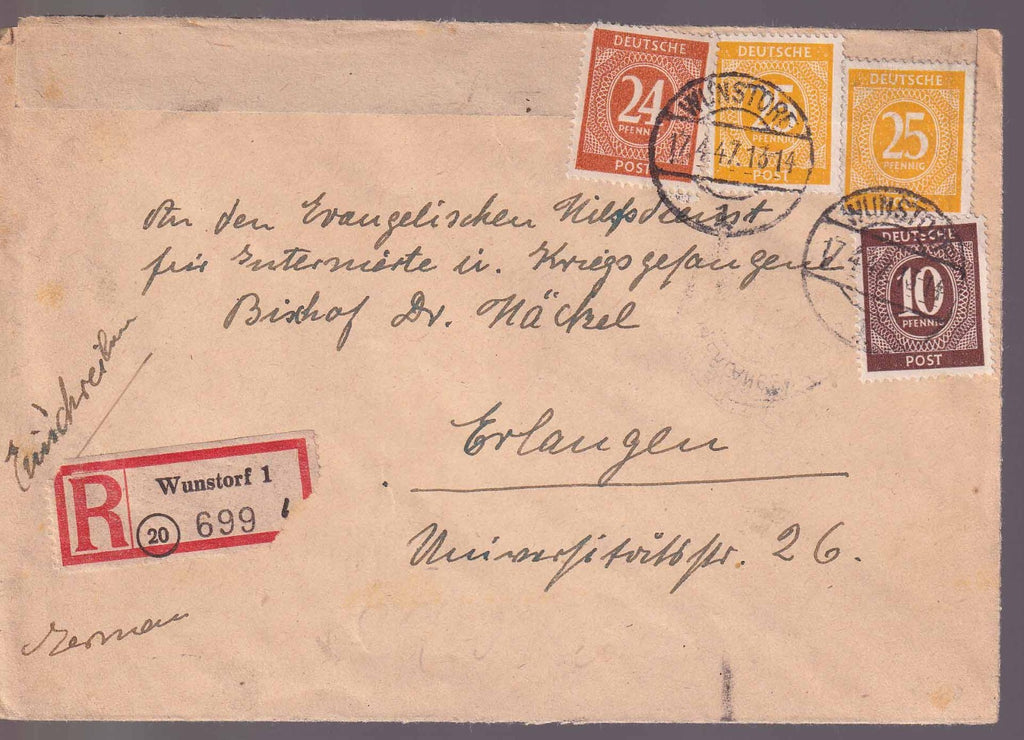 DEUTSCHE
24
PFENNIG
POST
DEUTSCHE
POST
DEUTSCHE
25
PFENNIG
WUNSTORF
17.4.47.13-14
1
WUNSTORF
17.
DEUTSCHE
10
PFENNIG
POST
An den Evangelischen Hilfsdienst
für Internierte u. Kriegsgefangene
Bischof Dr. Häckel
Erlangen
Universitätsstr. 26.
Einschreiben
R
Wunstorf 1
20
699
German